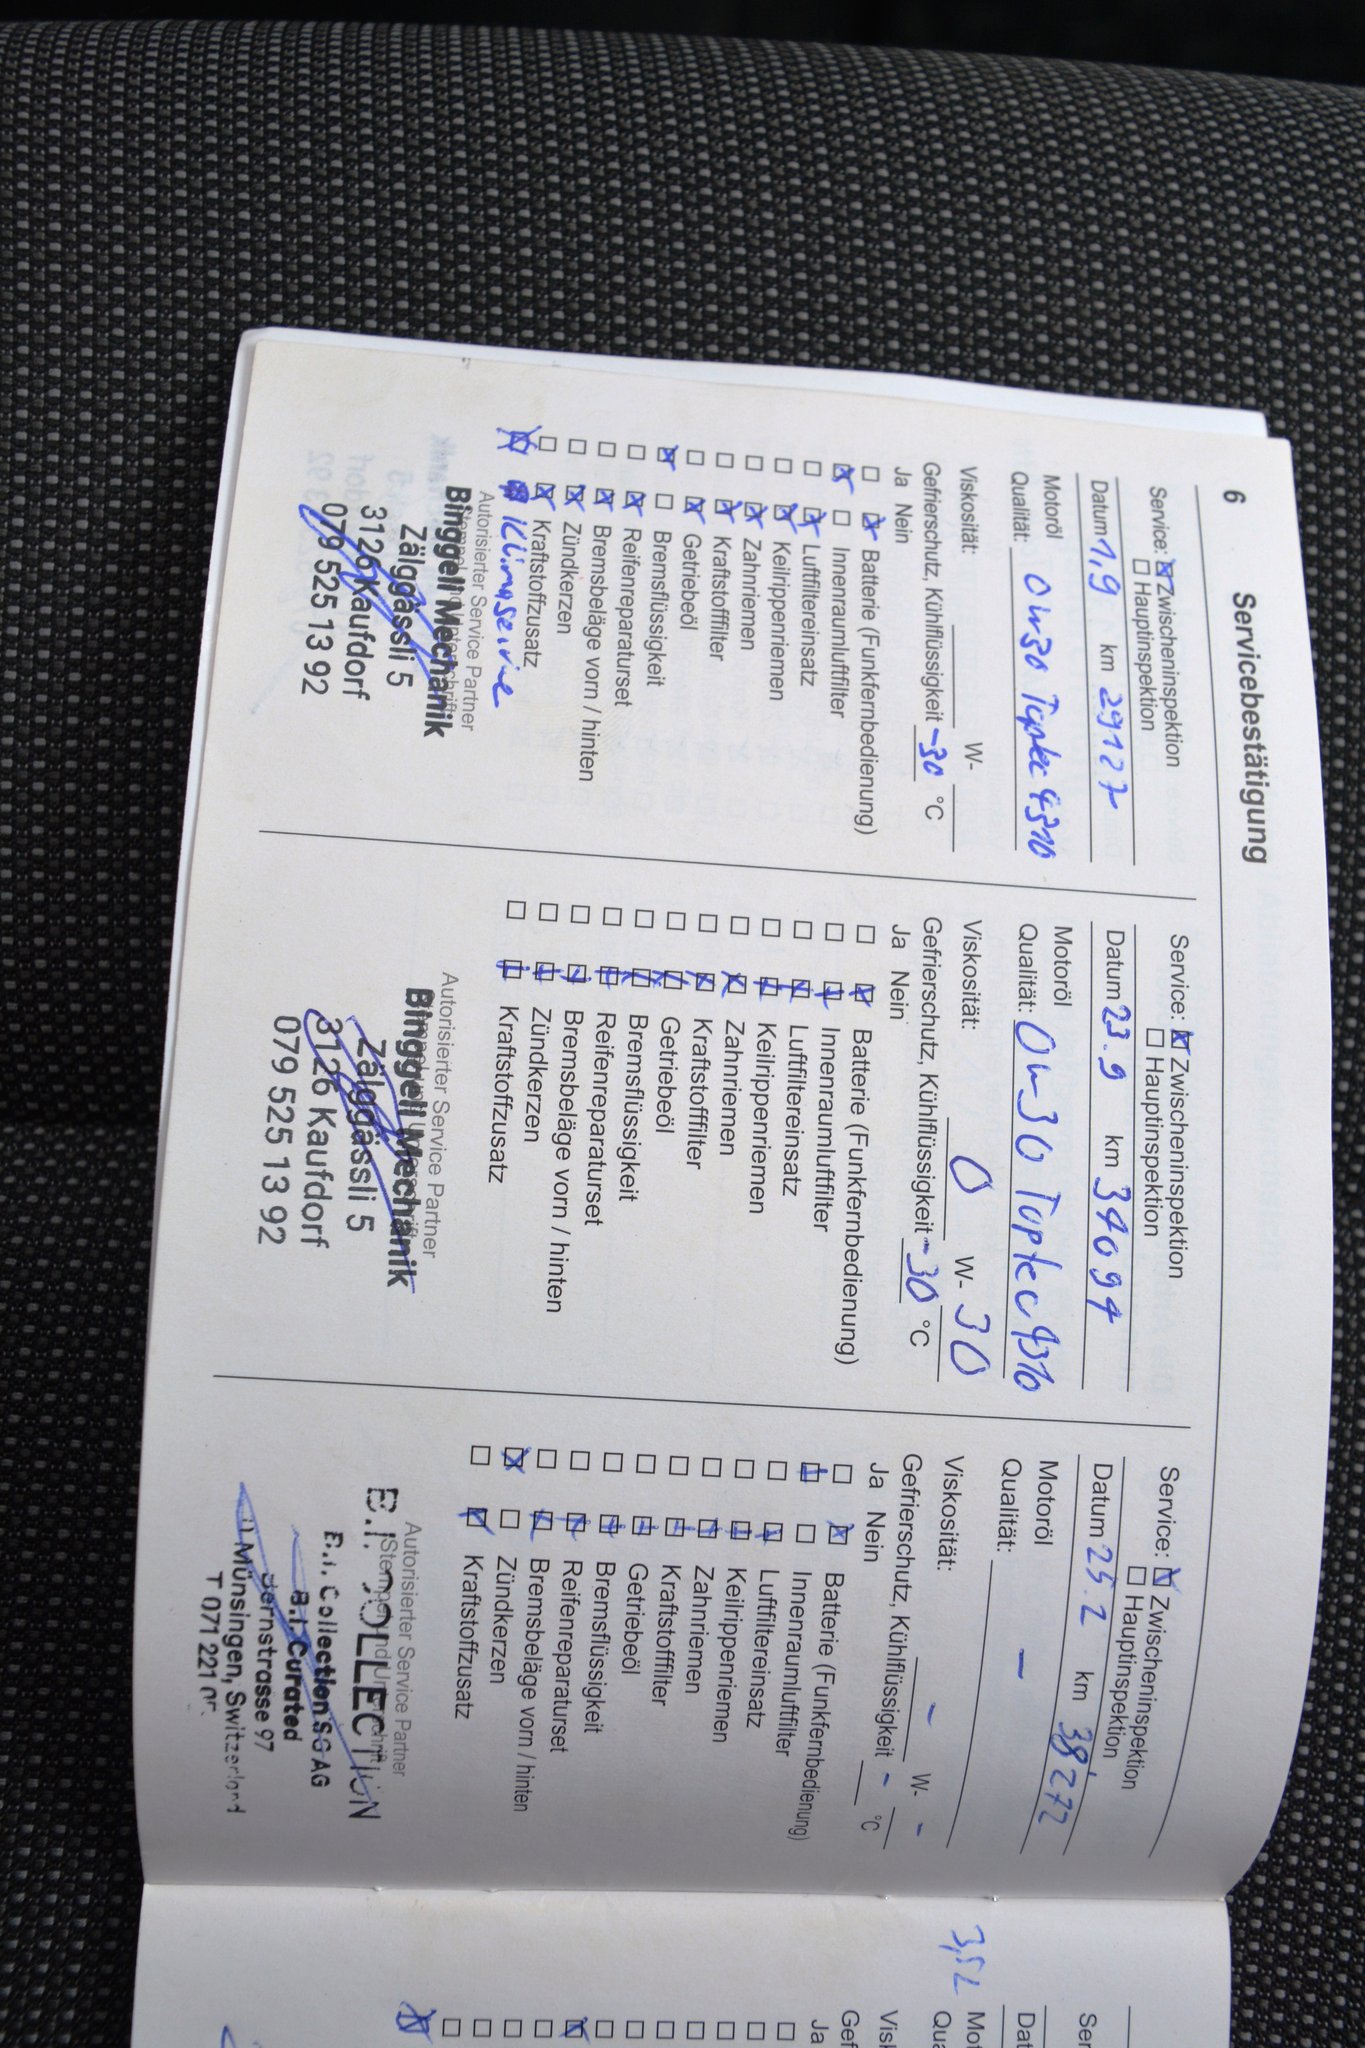 6
Servicebestätigung
Service: Zwischeninspektion
Hauptinspektion
Datum 1.9 km 29127
Motoröl
Qualität: 0W30 Toptec 4310
Viskosität: W-
Gefrierschutz, Kühlflüssigkeit -30 °C
Ja Nein
Batterie (Funkfernbedienung)
Innenraumluftfilter
Luftfiltereinsatz
Keilrippenriemen
Zahnriemen
Kraftstofffilter
Getriebeöl
Bremsflüssigkeit
Reifenreparaturset
Bremsbeläge vorn / hinten
Zündkerzen
Kraftstoffzusatz
Klimaservice
Autorisierter Service Partner
Binggeli Mechanik
Zälggässli 5
3126 Kaufdorf
079 525 13 92
Service: Zwischeninspektion
Hauptinspektion
Datum 23.9 km 34097
Motoröl
Qualität: 0W-30 Toptec 4310
Viskosität: 0 W- 30
Gefrierschutz, Kühlflüssigkeit -30 °C
Ja Nein
Batterie (Funkfernbedienung)
Innenraumluftfilter
Luftfiltereinsatz
Keilrippenriemen
Zahnriemen
Kraftstofffilter
Getriebeöl
Bremsflüssigkeit
Reifenreparaturset
Bremsbeläge vorn / hinten
Zündkerzen
Kraftstoffzusatz
Autorisierter Service Partner
Binggeli Mechanik
Zälggässli 5
3126 Kaufdorf
079 525 13 92
Service: Zwischeninspektion
Hauptinspektion
Datum 25.2 km 38'272
Motoröl
Qualität: -
Viskosität: - W- -
Gefrierschutz, Kühlflüssigkeit - °C
Ja Nein
Batterie (Funkfernbedienung)
Innenraumluftfilter
Luftfiltereinsatz
Keilrippenriemen
Zahnriemen
Kraftstofffilter
Getriebeöl
Bremsflüssigkeit
Reifenreparaturset
Bremsbeläge vorn / hinten
Zündkerzen
Kraftstoffzusatz
Autorisierter Service Partner
B.I. COLLECTION
B.I. Collection SG AG
B.I. Curated
Bernstrasse 97
Münsingen, Switzerland
T 071 221
Ser
Dat
3,5L Mot
Qua
Visk
Gef
Ja